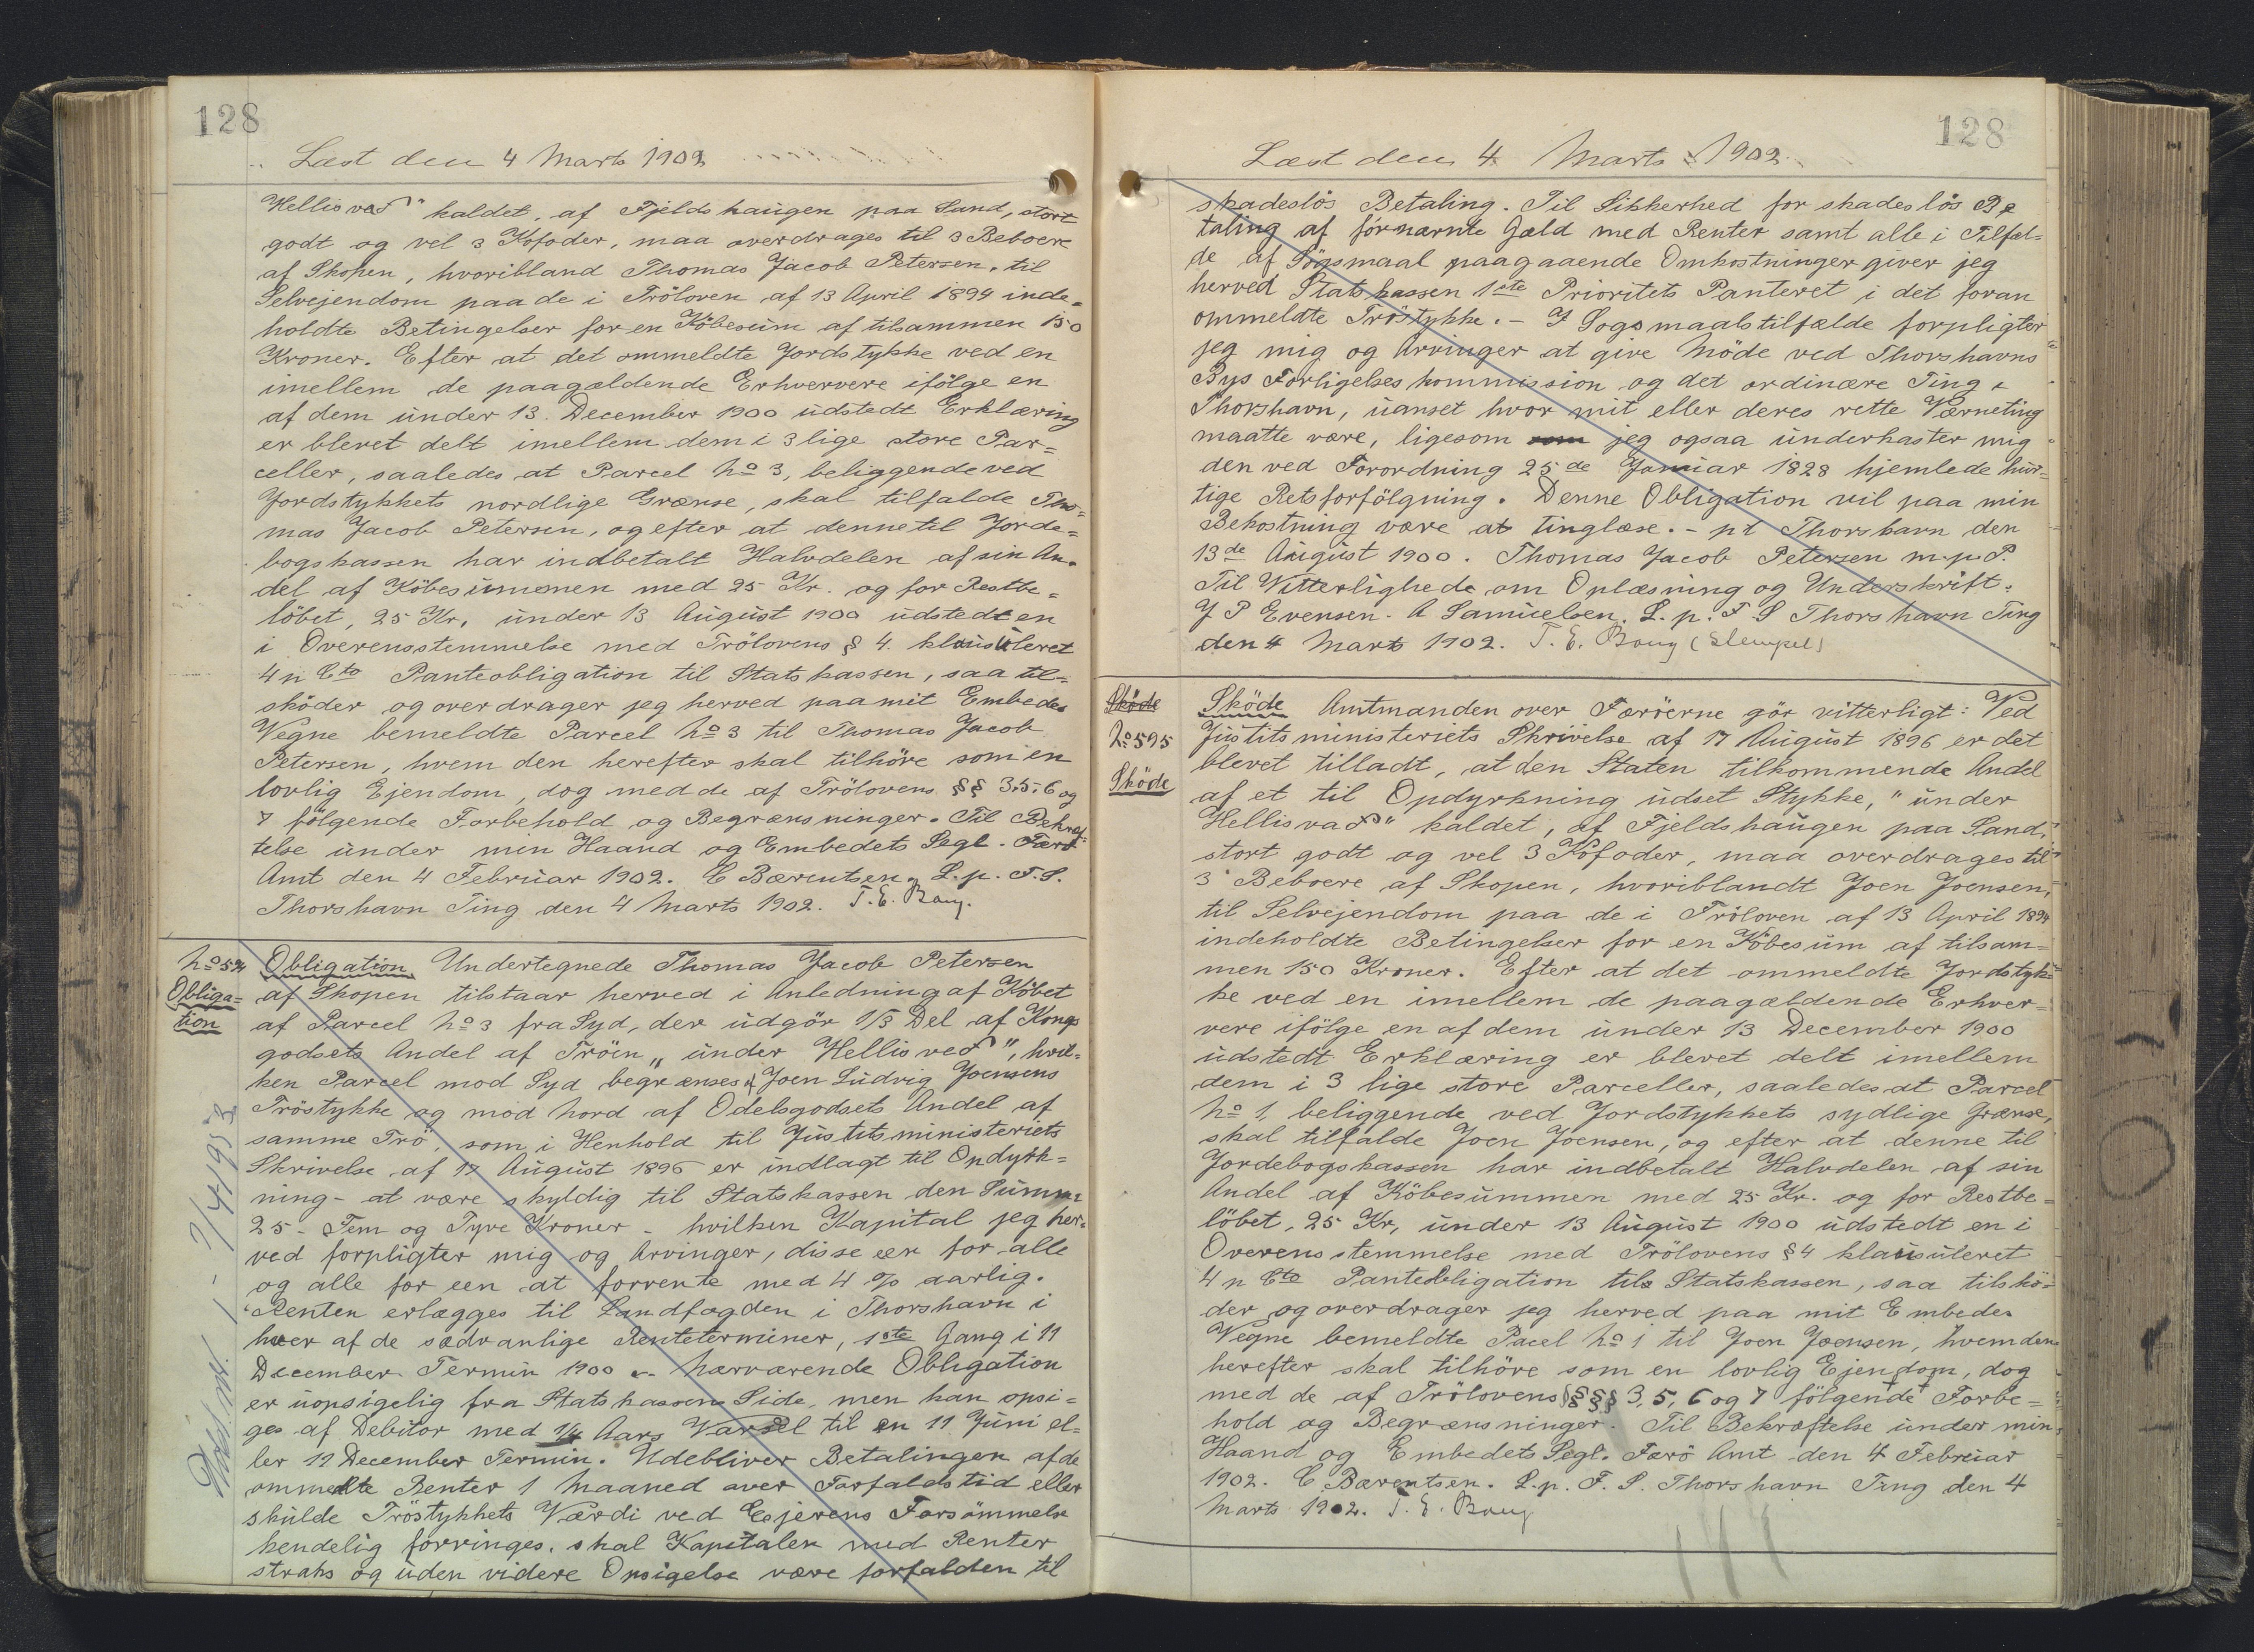 128
Læst den 4 Marts 1902
Hellisvad" kaldet, af Fjeldshaugen paa Sand, stort
godt og vel 3 Kofoder, maa overdrages til 3 Beboere
af Skopen, hvoribland Thomas Jacob Petersen, til
Selvejendom paa de i Tröloven af 13 April 1894 inde=
holdte Betingelser for en Köbesum af tilsammen 150
Kroner. Efter at det ommeldte Jordstykke ved en
imellem de paagældende Erhververe ifölge en
af dem under 13. December 1900 udstedt Erklæring
er blevet delt imellem dem i 3 lige store Par=
celler, saaledes at Parcel No 3, beliggende ved
Jordstykkets nordlige Grænse, skal tilfalde Tho=
mas Jacob Petersen, og efter at denne til Jorde=
bogskassen har indbetalt Halvdelen af sin An=
del af Köbesummen med 25 Kr. og for Restbe=
löbet, 25 Kr, under 13 August 1900 udstedt en
i Overensstemmelse med Trölovens § 4. klausuleret
4 n Cto Panteobligation til Statskassen, saa til=
sköder og overdrager jeg herved paa mit Embedes
Vegne bemeldte Parcel No 3 til Thomas Jacob
Petersen, hvem den herefter skal tilhöre som en
lovlig Ejendom, dog med de af Trölovens §§ 3, 5, 6 og
7 fölgende Forbehold og Begrænsninger. Til Bekræf=
telse under min Haand og Embedets Segl. Færö
Amt den 4 Februar 1902. C Bærentsen. L.p. F.S.
Thorshavn Ting den 4 Marts 1902. T.E. Bang.
No 594
Obliga=
tion
Obligation Undertegnede Thomas Jacob Petersen
af Skopen tilstaar herved i Anledning af Köbet
af Parcel No 3 fra Syd, der udgör 1/3 Del af Kong
godsets Andel af Tröen „under Hellisvad", hvil=
ken Parcel mod Syd begrænses af Joen Ludvig Joensens
Tröstykke og mod Nord af Odelsgodsets Andel af
samme Trö, som i Henhold til Justitsministeriets
Skrivelse af 17 August 1896 er indlagt til Opdyrk=
ning - at være skyldig til Statskassen den Summa
25 - Fem og Tyve Kroner - hvilken Kapital jeg her=
ved forpligter mig og Arvinger, disse een for alle
og alle for een at forrente med 4 % aarlig.
Renten erlægges til Landfogden i Thorshavn i
hver af de sædvanlige Renteterminer, 1ste Gang i 11
December Termin 1900 - Nærværende Obligation
er uopsigelig fra Statskassens Side, men kan opsi=
ges af Debitor med 1/4 Aars Varsel til en 11 Juni el=
ler 11 December Termin. Udebliver Betalingen af de
ommeldte Renter 1 Maaned over Forfaldstid eller
skulde Tröstykkets Værdi ved Ejerens Forsömmelse
kendelig forringes, skal Kapitalen med Renter
straks og uden videre Opsigelse være forfalden til
128
Læst den 4 Marts 1902
skadeslös Betaling. Til Sikkerhed for skadeslös Be
taling af fornævnte Gæld med Renter samt alle i Tilfæl=
de af Sögsmaal paagaaende Omkostninger giver jeg
herved Statskassen 1ste Prioritets Panteret i det foran
ommeldte Tröstykke. - I Sogsmaalstilfælde forpligter
jeg mig og Arvinger at give Möde ved Thorshavns
Bys Forligelseskommission og det ordinære Ting i
Thorshavn, uanset hvor mit eller deres rette Værneting
maatte være, ligesom som jeg ogsaa underkaster mig
den ved Forordning 25de Januar 1828 hjemlede hur=
tige Retsforfölgning. Denne Obligation vil paa min
Bekostning være at tinglæse. - pt Thorshavn den
13de August 1900. Thomas Jacob Petersen m.p.P.
Til Vitterlighede om Oplæsning og Underskrift:
J P Evensen. A Samuelsen. L.p. F. S Thorshavn Ting
den 4 Marts 1902. T. E. Bang (Stempel)
Sköde
No 595
Sköde
Sköde Amtmanden over Færöerne gör vitterligt: Ved
Justitsministeriets Skrivelse af 17 August 1896 er det
blevet tilladt, at den Staten tilkommende Andel
af et til Opdyrkning udset Stykke, "under
Hellisvad" kaldet, af Fjeldshaugen paa Sand,
stort godt og vel 3 Kofoder, maa overdrages til
3 Beboere af Skopen, hvoriblandt Joen Joensen,
til Selvejendom paa de i Tröloven af 13 April 1894
indeholdte Betingelser for en Köbesum af tilsam=
men 150 Kroner. Efter at det ommeldte Jordstyk=
ke ved en imellem de paagældende Erhver=
vere ifölge en af dem under 13 December 1900
udstedt Erklæring er blevet delt imellem
dem i 3 lige store Parceller, saaledes at Parcel
No 1, beliggende ved Jordstykkets sydlige Grænse,
skal tilfalde Joen Joensen, og efter at denne til
Jordebogskassen har indbetalt Halvdelen af sin
Andel af Köbesummen med 25 Kr. og for Restbe=
löbet, 25 Kr, under 13 August 1900 udstedt en i
Overensstemmelse med Trölovens § 4 klausuleret
4 n Cto Panteobligation til Statskassen, saa tilskö=
der og overdrager jeg herved paa mit Embedes
Vegne bemeldte Pacel No 1 til Joen Joensen, hvem den
herefter skal tilhöre som en lovlig Ejendom, dog
med de af Trölovens §§§§ 3, 5, 6 og 7 fölgende Forbe=
hold og Begrænsninger. Til Bekræftelse under min
Haand og Embedets Segl. Færö Amt den 4 Februar
1902. C Bærentsen. L.p. F. S. Thorshavn Ting den 4
Marts 1902. T. E. Bang